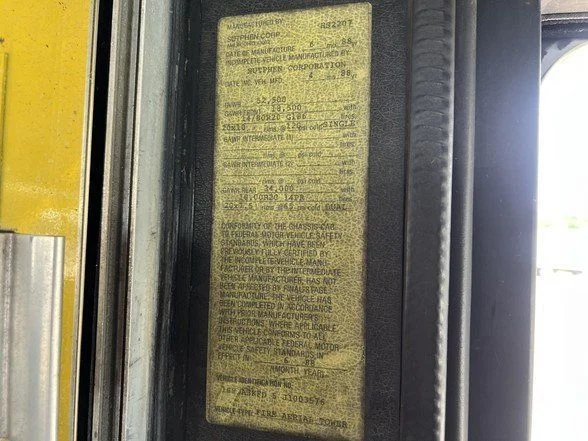 MANUFACTURED BY HS2207
SUTPHEN CORP.
DATE OF MANUFACTURE 6 mo. 88 yr
INCOMPLETE VEHICLE MANUFACTURED BY
SUTPHEN CORPORATION
DATE INC. VEH. MFD. mo. 88 yr
GVWR 52,500
GAWR FRONT with
14/80R20 G186 tires
20x10 rims @ 120 psi cold SINGLE
GAWR INTERMEDIATE (1) with
tires
rims @ psi cold
GAWR INTERMEDIATE (2) with
tires
rims @ psi cold
GAWR REAR 34,000 with
14PR tires
rims @ psi cold DUAL
CONFORMITY OF THE CHASSIS-CAB
TO FEDERAL MOTOR VEHICLE SAFETY
STANDARDS, WHICH HAVE BEEN
PREVIOUSLY FULLY CERTIFIED BY
THE INCOMPLETE VEHICLE MANU-
FACTURER OR BY THE INTERMEDIATE
VEHICLE MANUFACTURER, HAS NOT
BEEN AFFECTED BY FINAL STAGE
MANUFACTURE. THE VEHICLE HAS
BEEN COMPLETED IN ACCORDANCE
WITH PRIOR MANUFACTURER'S
INSTRUCTIONS, WHERE APPLICABLE.
THIS VEHICLE CONFORMS TO ALL
OTHER APPLICABLE FEDERAL MOTOR
VEHICLE SAFETY STANDARDS IN
EFFECT IN 6 88
(MONTH, YEAR)
VEHICLE IDENTIFICATION NO.
VEHICLE TYPE: FIRE AERIAL TOWER